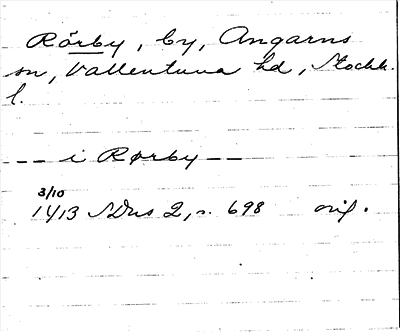 Rörby, by, Angarns
sn, Vallentuna hd, Stockh.
l.
--- i Rørby --
3/10
1413 SDns 2, s. 698 orig.